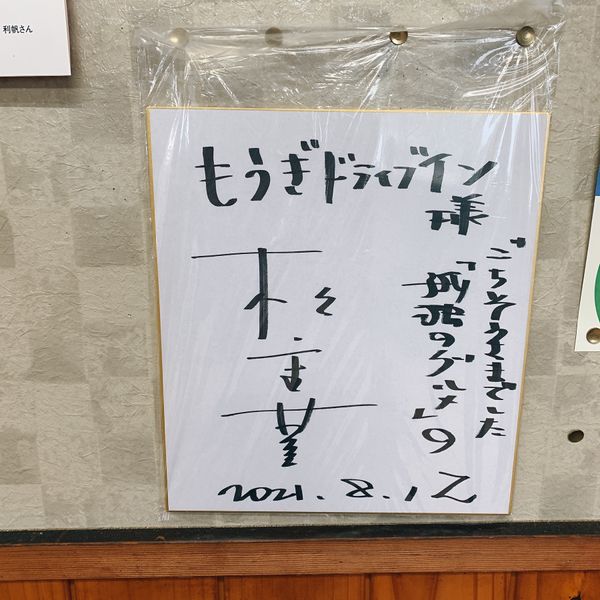 利帆さん
もうぎドライブイン
様
ごちそうさまでした
「孤独のグルメ」9
松重豊
2021.8.12